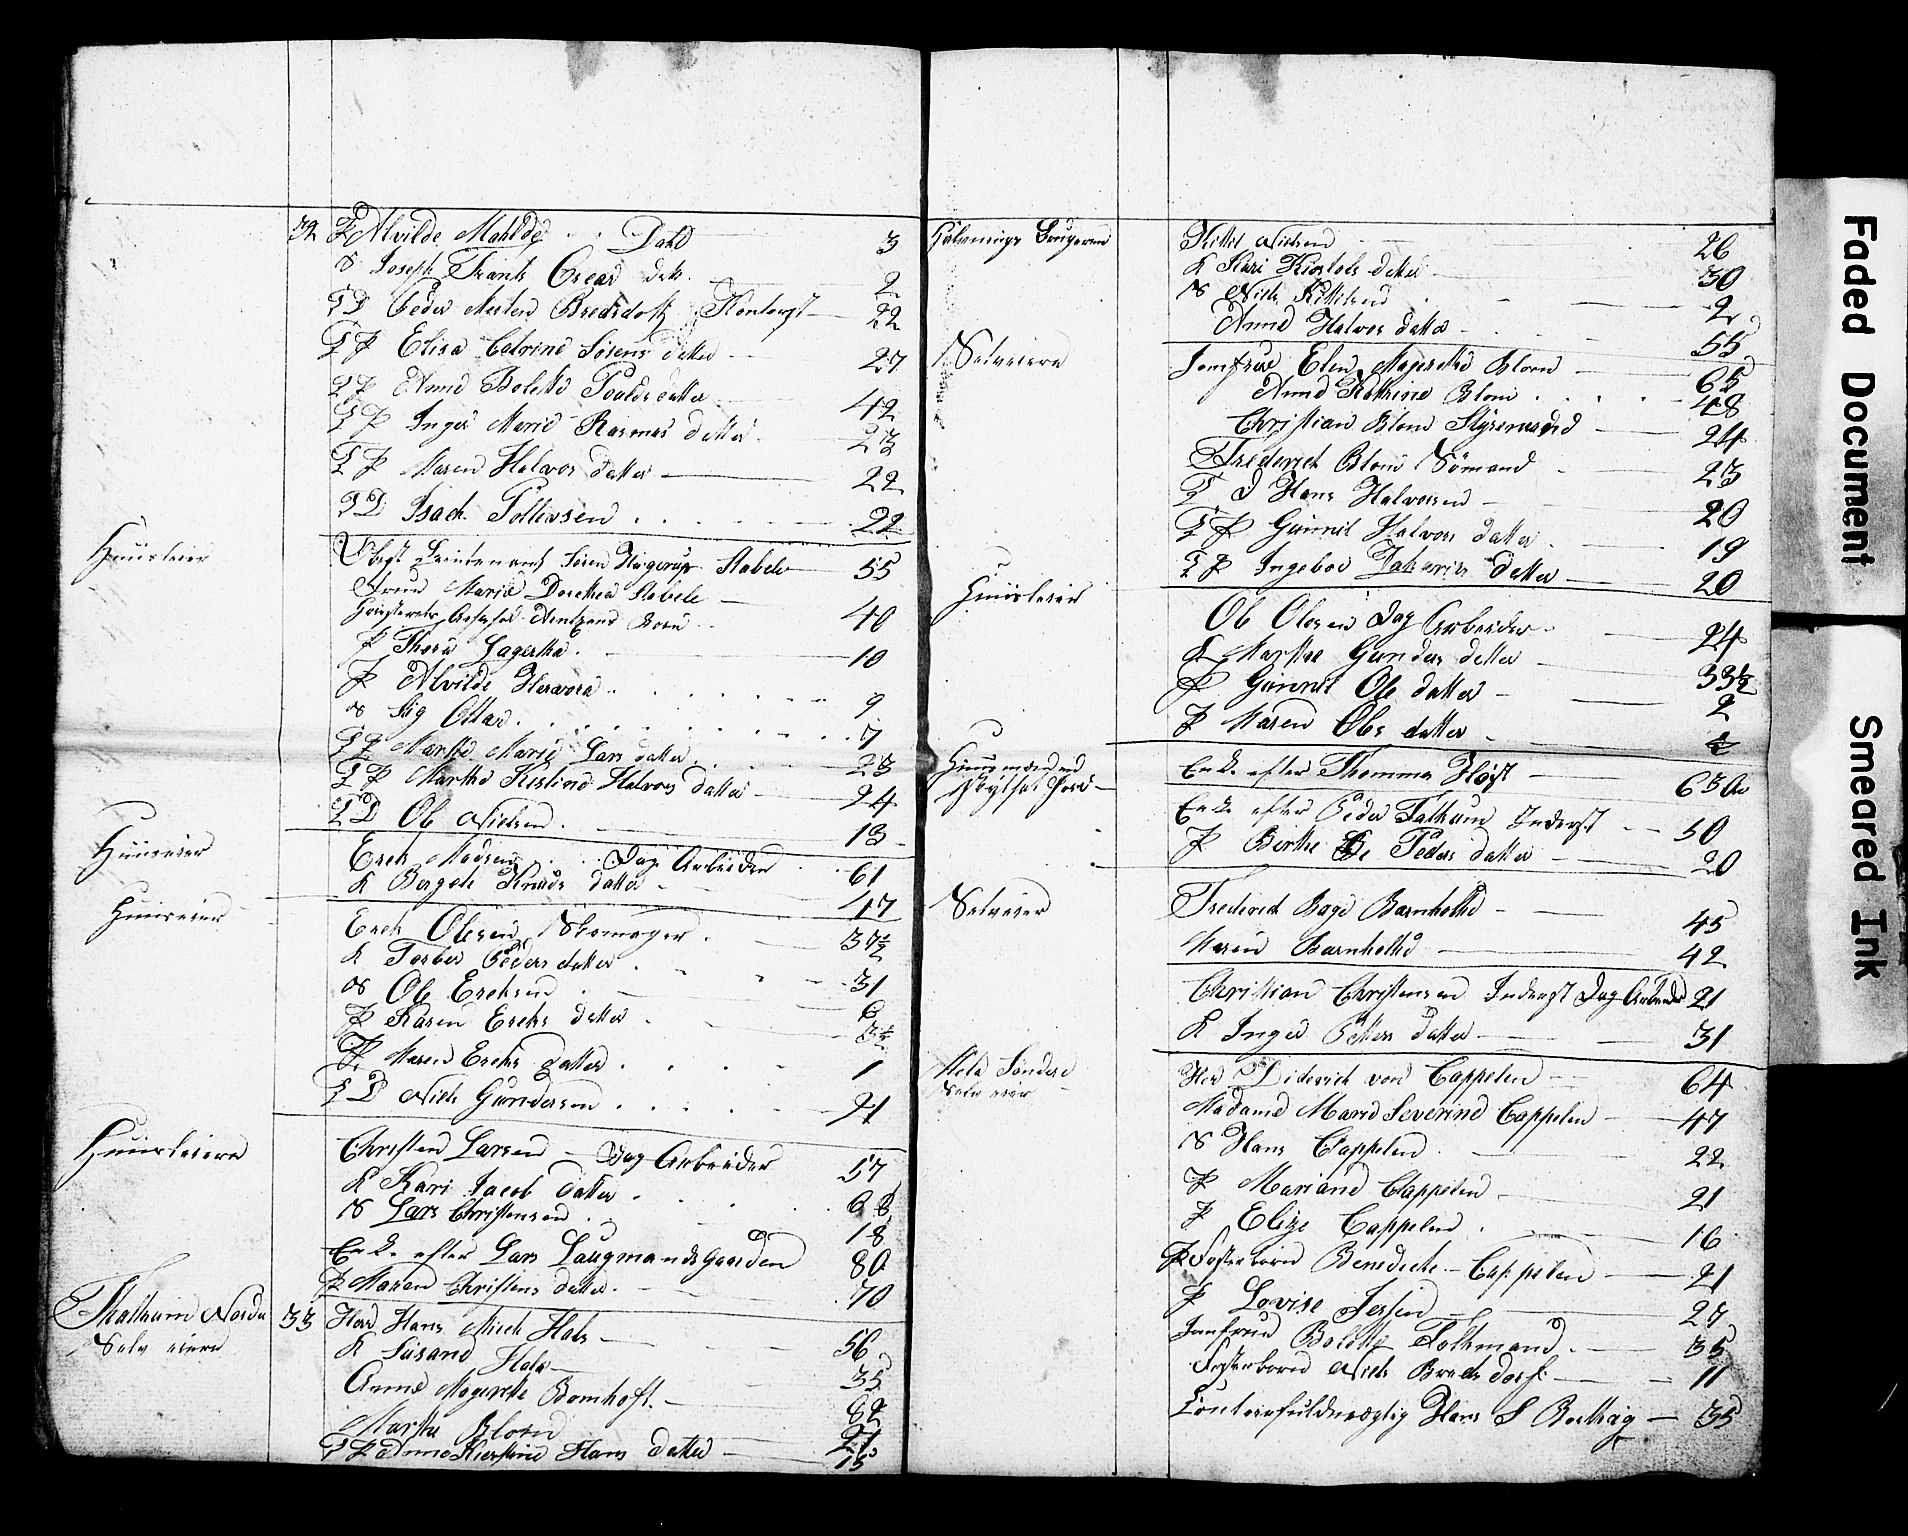 32 P Alvilde Mahlde Dahl 3
S Joseph Frants Oscar do 2
T D Peder Morten Bredsdorff Kontorist 22
T P Elisa Catrine Sørens datter 27
T P Anne Bolette Poulds datter 42
T P Inger Marie Rasmus datter 23
T P Maren Halvors datter 22
T D Isach Tollevsen 22
Huusleier Obrist Leutenant Søren Stabel 55
Fruen Marie Dorothea Stabele 40
Børn
P Thora Lagertha 10
P Alvilde Hervora 9
S Stig Ottar 7
T P Marthe Marie Lars datter 23
T P Marthe Kirstine Halvors datter 24
T D Ole Nielsen 13
Huuseier Erek Madsen Dag Arbeider 61
K Borgele Knuds datter 47
Huuseier Erek Olesen Skomager 37½
K Torber Peders datter 31
S Ole Ereksen 6
P Karen Ereks datter 3½
P Maren Ereks datter 1
T D Niels Gundersen 21
Huusleiere Christen Larsen Dag Arbeider 57
K Kari Jacob datter 68
S Lars Christensen 18
Enke efter Lars Laugmandsgaarden 80
P Maren Christens datter 70
Thalhaim Nordre 33 Herr Hans Mich Hals 56
Selv eiere K Susand Hals 35
Anne Magrethe Bomhoft 82
Martha Blom 21
T P Anne Kierstine Hans datter 15
Brugeren Kittel Nielsen 26
K Kari Kiostols datter 30
S Niels Kittelsen 2
Anne Halvors datter 55
Selveiere Jomfrue Elen Magrethe Blom 65
Anne Kathrine Blom 48
Christian Blom Styremand 24
Frederich Blom Sømand 23
T D Hans Halvorsen 20
T P Gunnil Halvors datter 19
T P Ingebor Zakarias datter 20
Huusleier Ole Olesen Dag Arbeider 24
K Marthe Gunders datter 33½
P Gunnil Ole datter 2
P Maren Ols datter
Huusmænd Enke efter Thommas Høist 63
Enke efter Peder Falkum Inderst 50
P Birthe Peders datter 20
Selveier Frederich Bage Barnholdt 45
Maren Barnholdt 42
Christian Christensen Inderst Dag Arbeider 21
K Inger Petters datter 31
Mela Søndre Herr Diderich von Cappelen 64
Selv eier Madame Marie Severine Cappelen 47
S Hans Cappelen 22
P Mariane Cappelen 21
P Elize Cappelen 16
P Fosterbørn Benedicte Cappelen 21
P Lovise Jersin 27
Jomfrue Bolette Folkmand 35
Fosterbørn Niels Bredsdorf 11
Contoirfuldmægtig Hans S 35
Faded Document
Smeared Ink